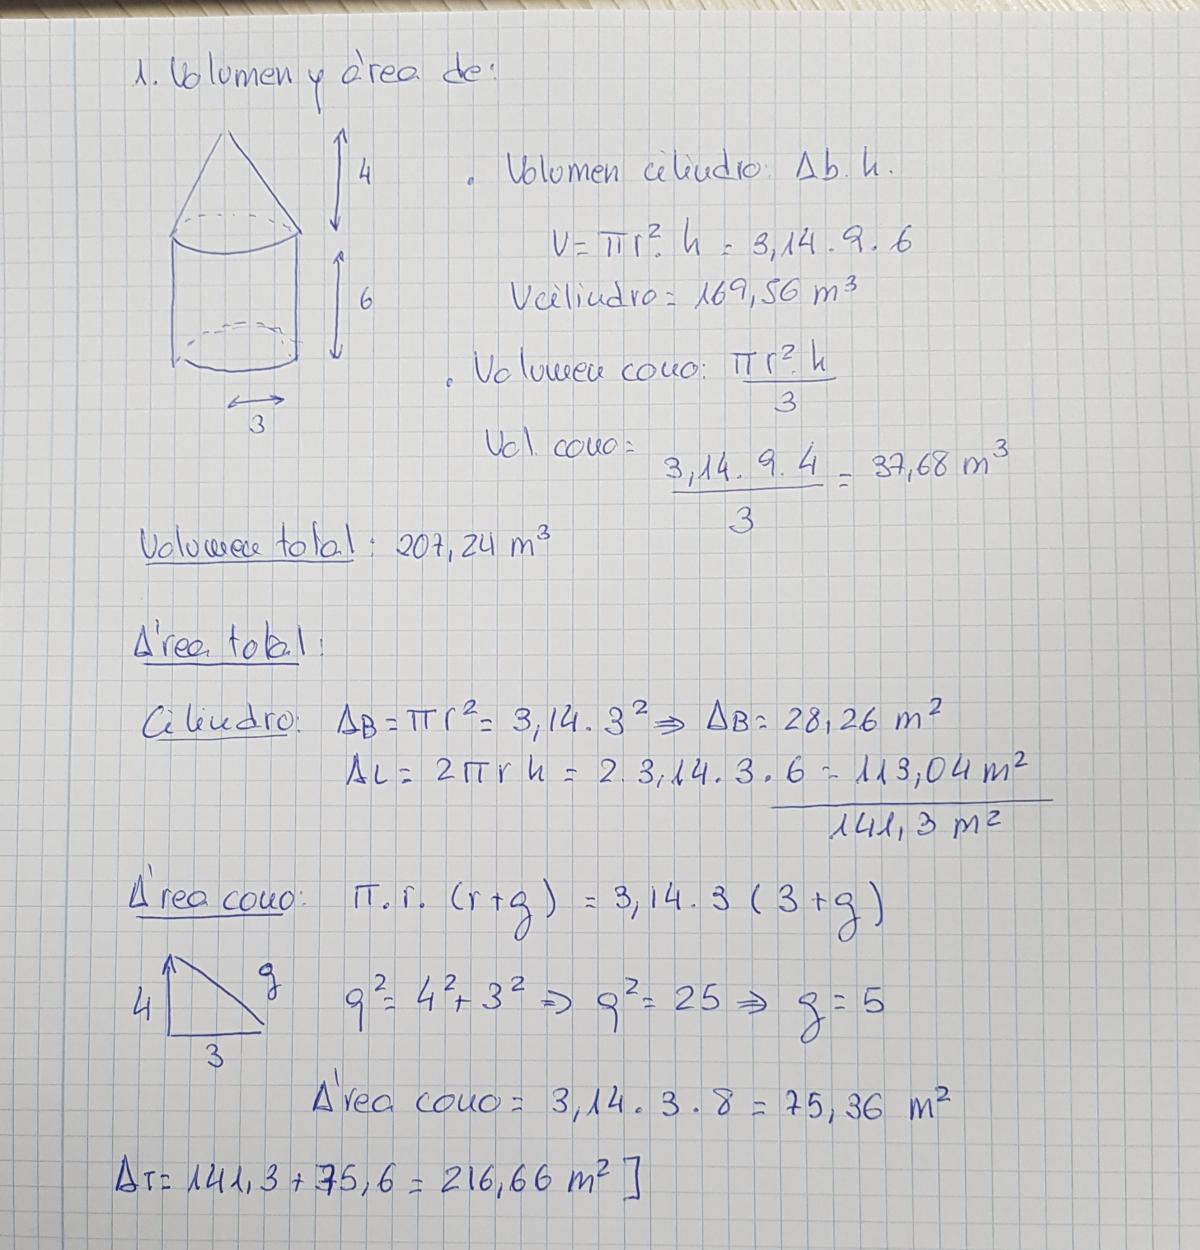 1. Volumen y área de:
4
. Volumen cilindro: Ab. h.
V = πr². h = 3,14. 9. 6
6
Vcilindro = 169,56 m³
. Volumen cono: πr². h / 3
3
Vol. cono = 3,14. 9. 4 / 3 = 37,68 m³
Volumen total: 207,24 m³
Área total:
Cilindro: AB = πr² = 3,14. 3² ⇒ AB = 28,26 m²
AL = 2πrh = 2. 3,14. 3. 6 = 113,04 m²
141,3 m²
Área cono: π. r. (r+g) = 3,14. 3 (3+g)
g
4
g² = 4² + 3² ⇒ g² = 25 ⇒ g = 5
3
Área cono = 3,14. 3. 8 = 75,36 m²
AT = 141,3 + 75,6 = 216,66 m²]